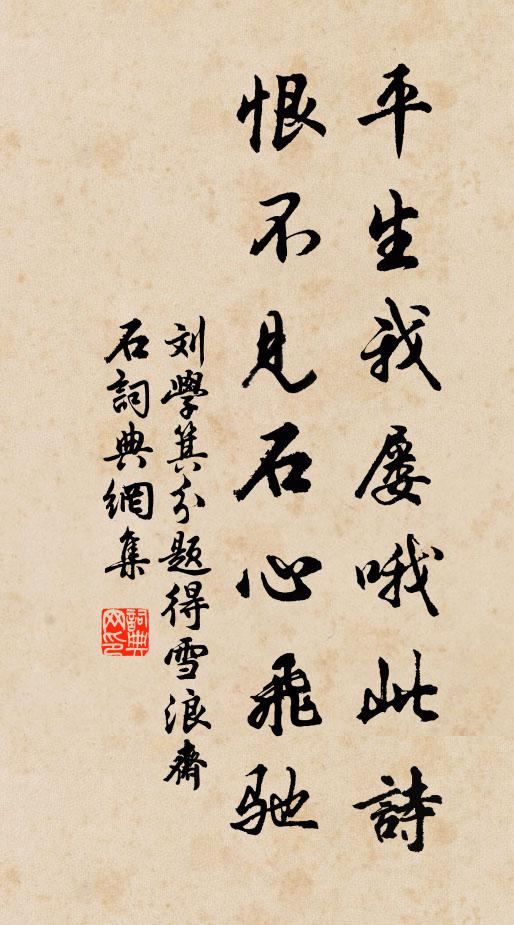 平生我屡哦此詩
恨不見石心飛馳
刘學箕分題得雪浪齋
石詞典網集
詞典網印